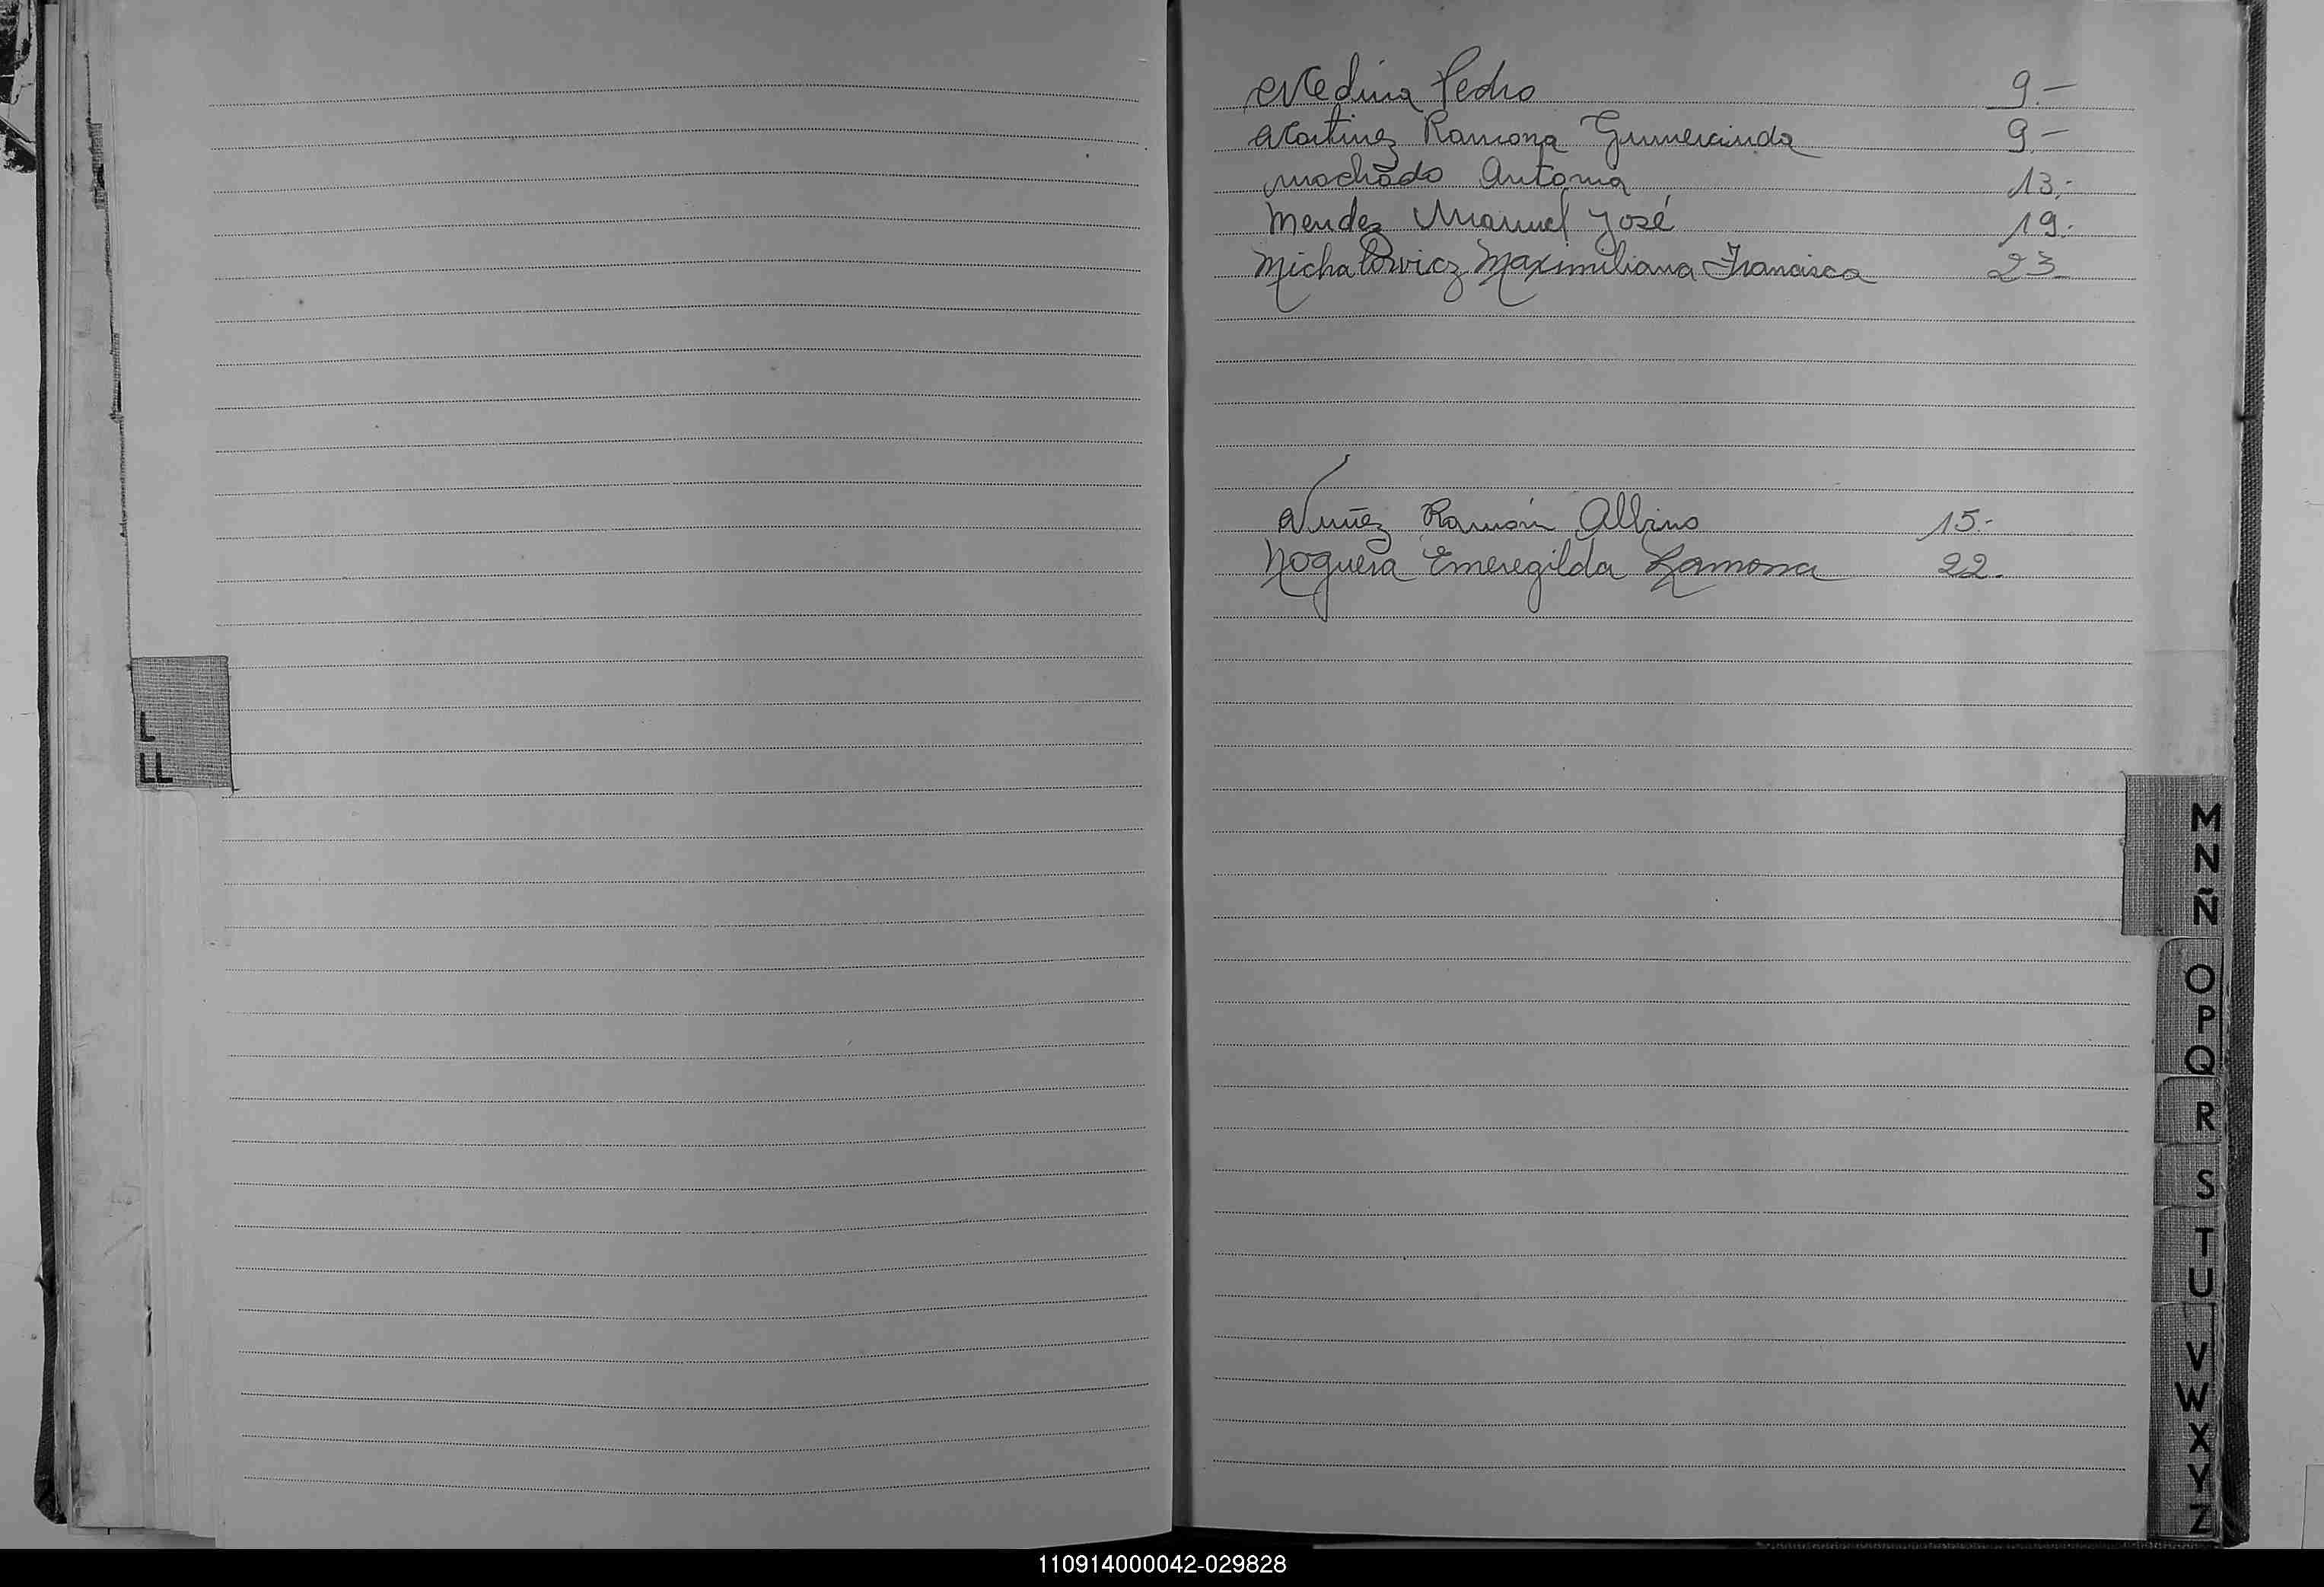 Medina Pedro 9.-
Martinez Ramona Gumercinda 9-
Machado Antonia 13.-
Mendez Manuel José 19.-
Michalowicz Maximiliana Francisca 23
Nuñez Ramón Albino 15.-
Noguera Emeregilda Ramona 22.
L
LL
M
N
Ñ
O
P
Q
R
S
T
U
V
W
X
Y
Z
110914000042-029828